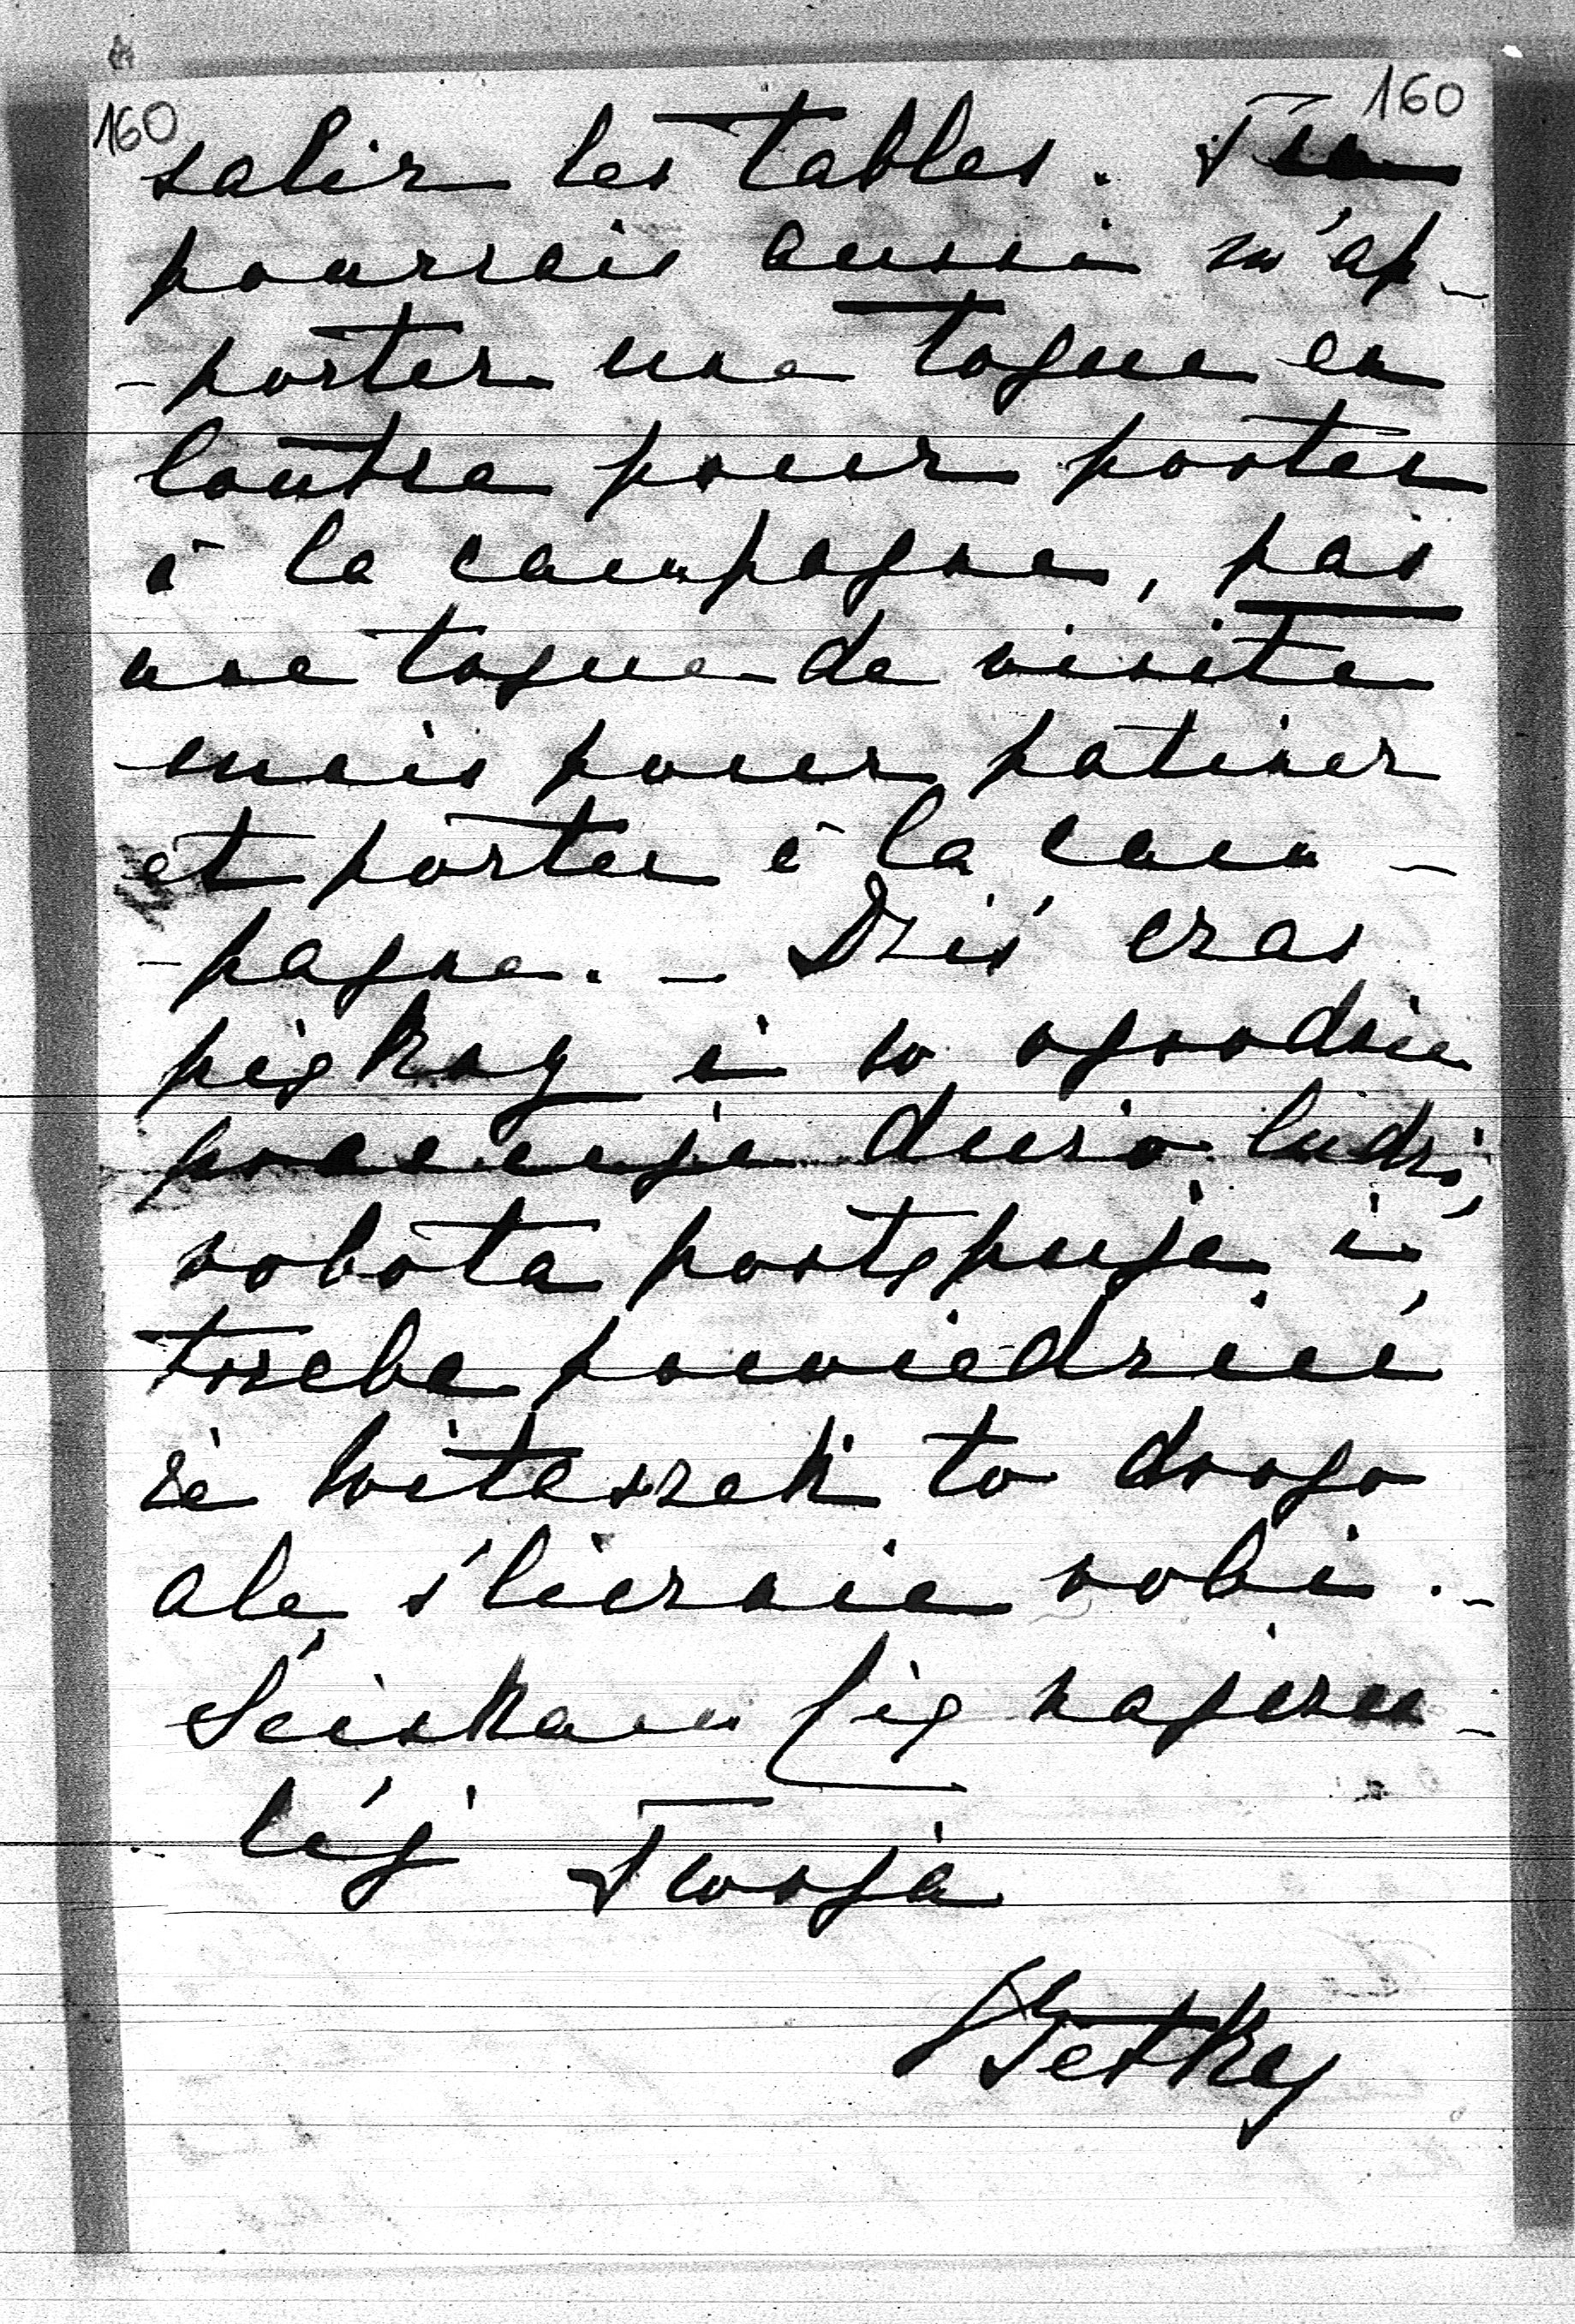 160 160
salir les tables. Tu
pourrais aussi m'ap-
-porter une toque en
loutre pour porter
à la campagne, pas
une toque de visite
mais pour patiner
et porter à la cam-
-pagne. - Dziś czas
piękny i w ogrodzie
pracuje dużo ludzi,
robota postępuje i
trzeba powiedzieć
że Witaszek to drogo
ale ślicznie robi. -
Ściskam Cię najczu-
léj Twoja
Betka